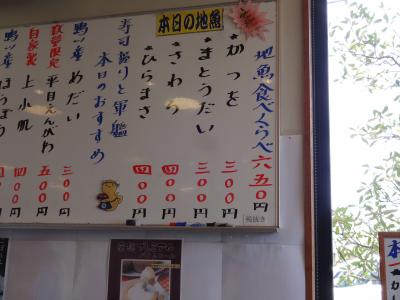 本日の地魚
地魚食べくらべ 六五〇円
かつを 三〇〇円
まとうだい 三〇〇円
さわら 四〇〇円
ひらまさ 四〇〇円
寿司握りと軍艦
本日のおすすめ
鴨川産 めだい 三〇〇円
数量限定 平目えんがわ 五〇〇円
自家製 上小肌 四〇〇円
鴨川産 ほうぼう
税抜き
本